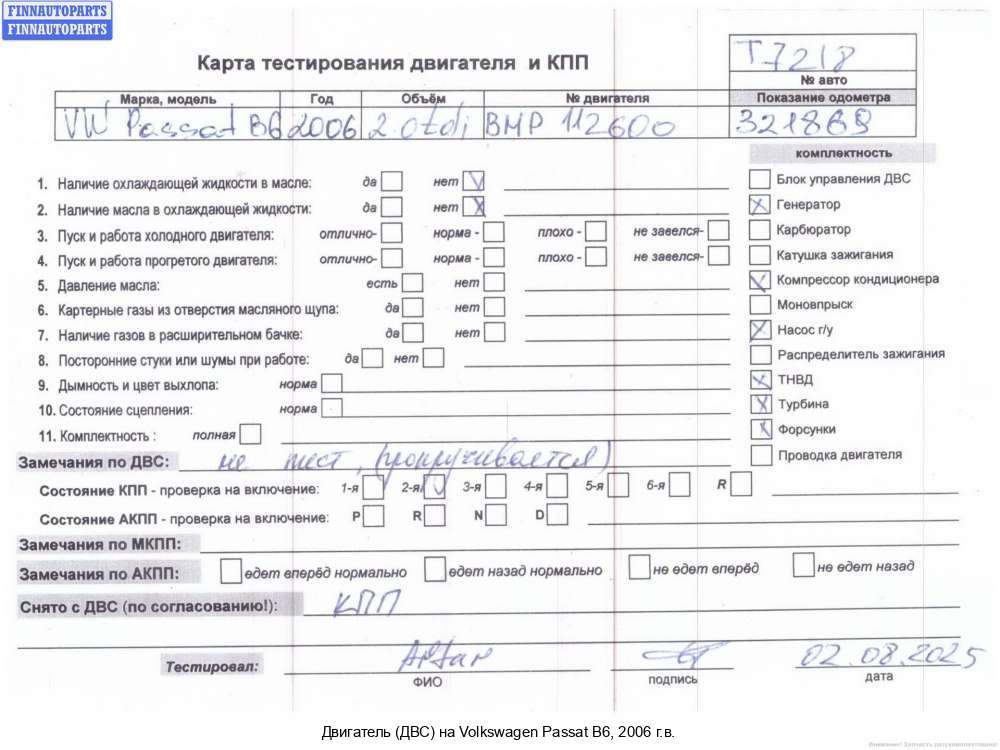 FINNAUTOPARTS
FINNAUTOPARTS
Карта тестирования двигателя и КПП
T7218
№ авто
Марка, модель Год Объём № двигателя Показание одометра
VW Passat B6 2006 2.0tdi BMP 112600 321869
комплектность
1. Наличие охлаждающей жидкости в масле: да нет
Блок управления ДВС
2. Наличие масла в охлаждающей жидкости: да нет
Генератор
3. Пуск и работа холодного двигателя: отлично- норма - плохо - не завелся-
Карбюратор
4. Пуск и работа прогретого двигателя: отлично- норма - плохо - не завелся-
Катушка зажигания
5. Давление масла: есть нет
Компрессор кондиционера
6. Картерные газы из отверстия масляного щупа: да нет
Моновпрыск
7. Наличие газов в расширительном бачке: да нет
Насос г/у
8. Посторонние стуки или шумы при работе: да нет
Распределитель зажигания
9. Дымность и цвет выхлопа: норма
ТНВД
10. Состояние сцепления: норма
Турбина
11. Комплектность : полная
Форсунки
Замечания по ДВС: не тест, (прокручивается)
Проводка двигателя
Состояние КПП - проверка на включение: 1-я 2-я 3-я 4-я 5-я 6-я R
Состояние АКПП - проверка на включение: P R N D
Замечания по МКПП:
Замечания по АКПП: едет вперёд нормально едет назад нормально не едет вперёд не едет назад
Снято с ДВС (по согласованию!): КПП
Тестировал: 02.08.2025
ФИО подпись дата
Двигатель (ДВС) на Volkswagen Passat B6, 2006 г.в.
Внимание! Запчасть разукомплектована!